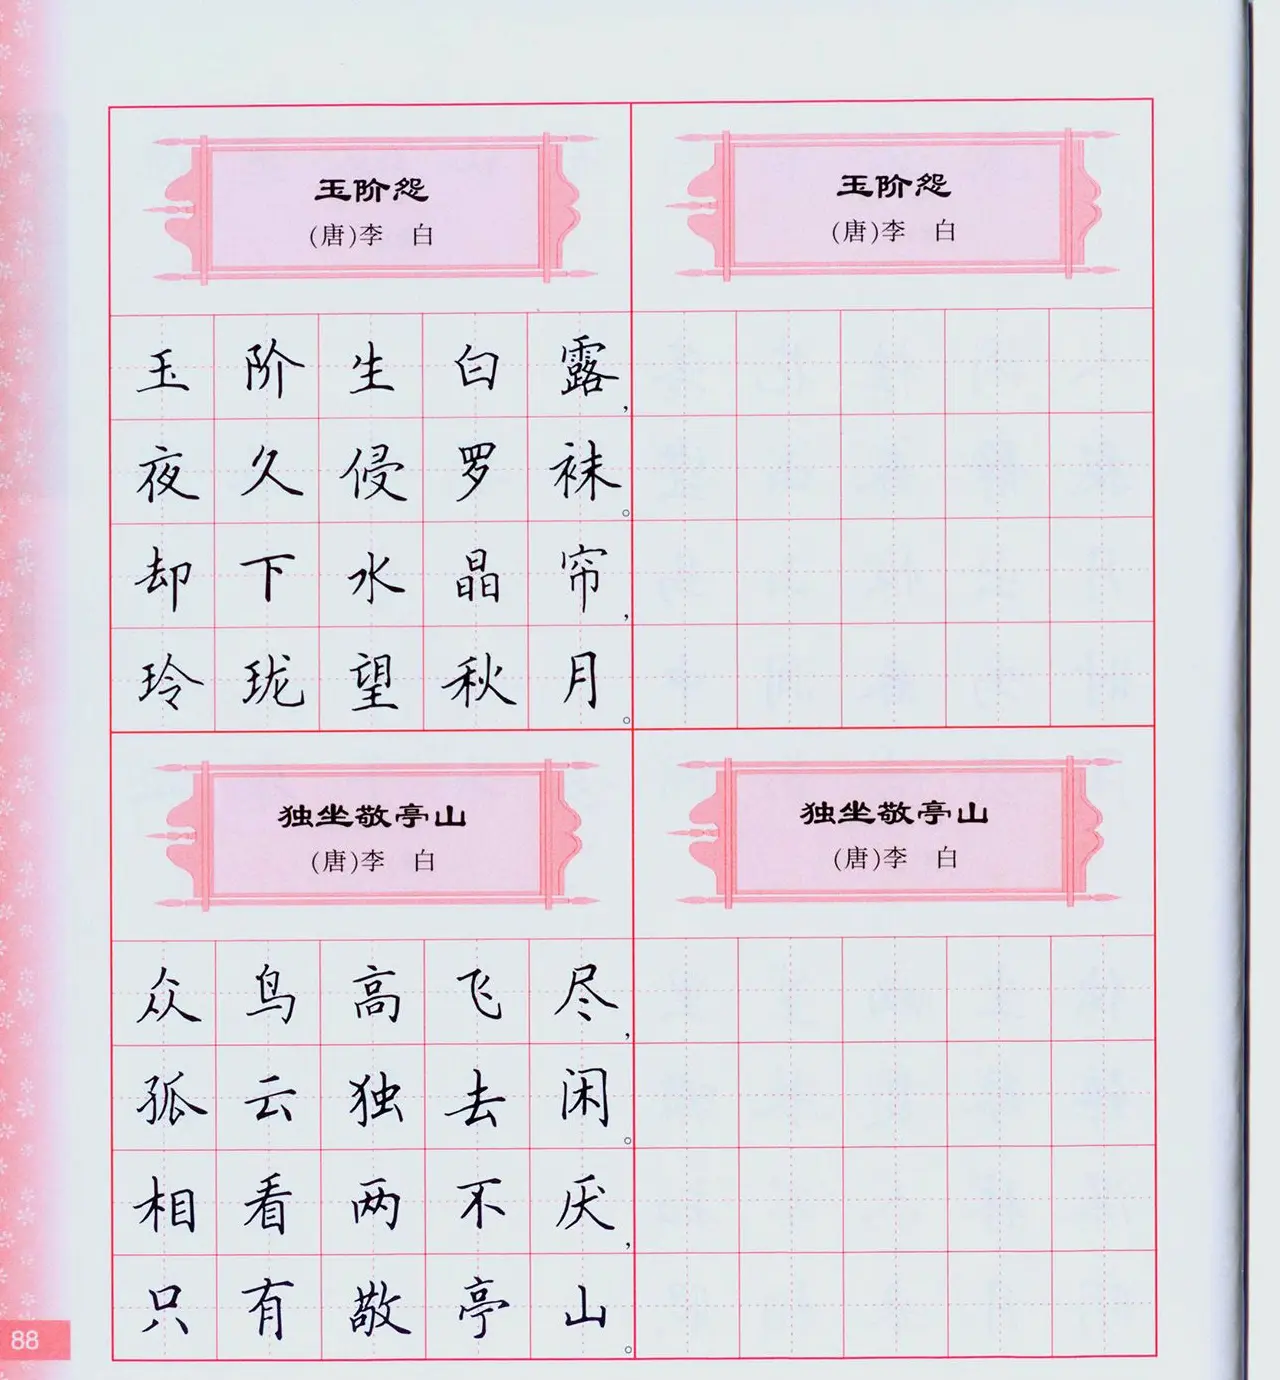 玉阶怨
(唐)李 白
玉阶生白露,
夜久侵罗袜。
却下水晶帘,
玲珑望秋月。
玉阶怨
(唐)李 白
独坐敬亭山
(唐)李 白
众鸟高飞尽,
孤云独去闲。
相看两不厌,
只有敬亭山。
独坐敬亭山
(唐)李 白
88